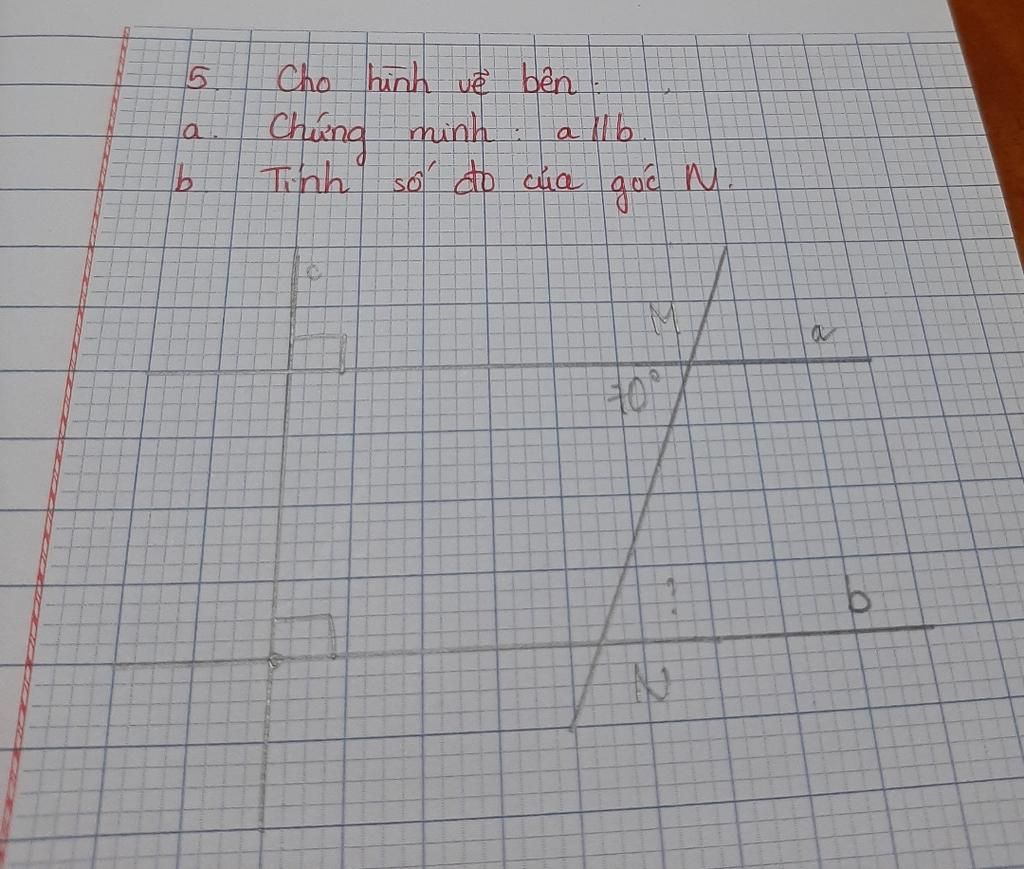 5. Cho hình vẽ bên:
a. Chứng minh: a // b.
b Tính số đo của góc N.
c
M a
70°
? b
N